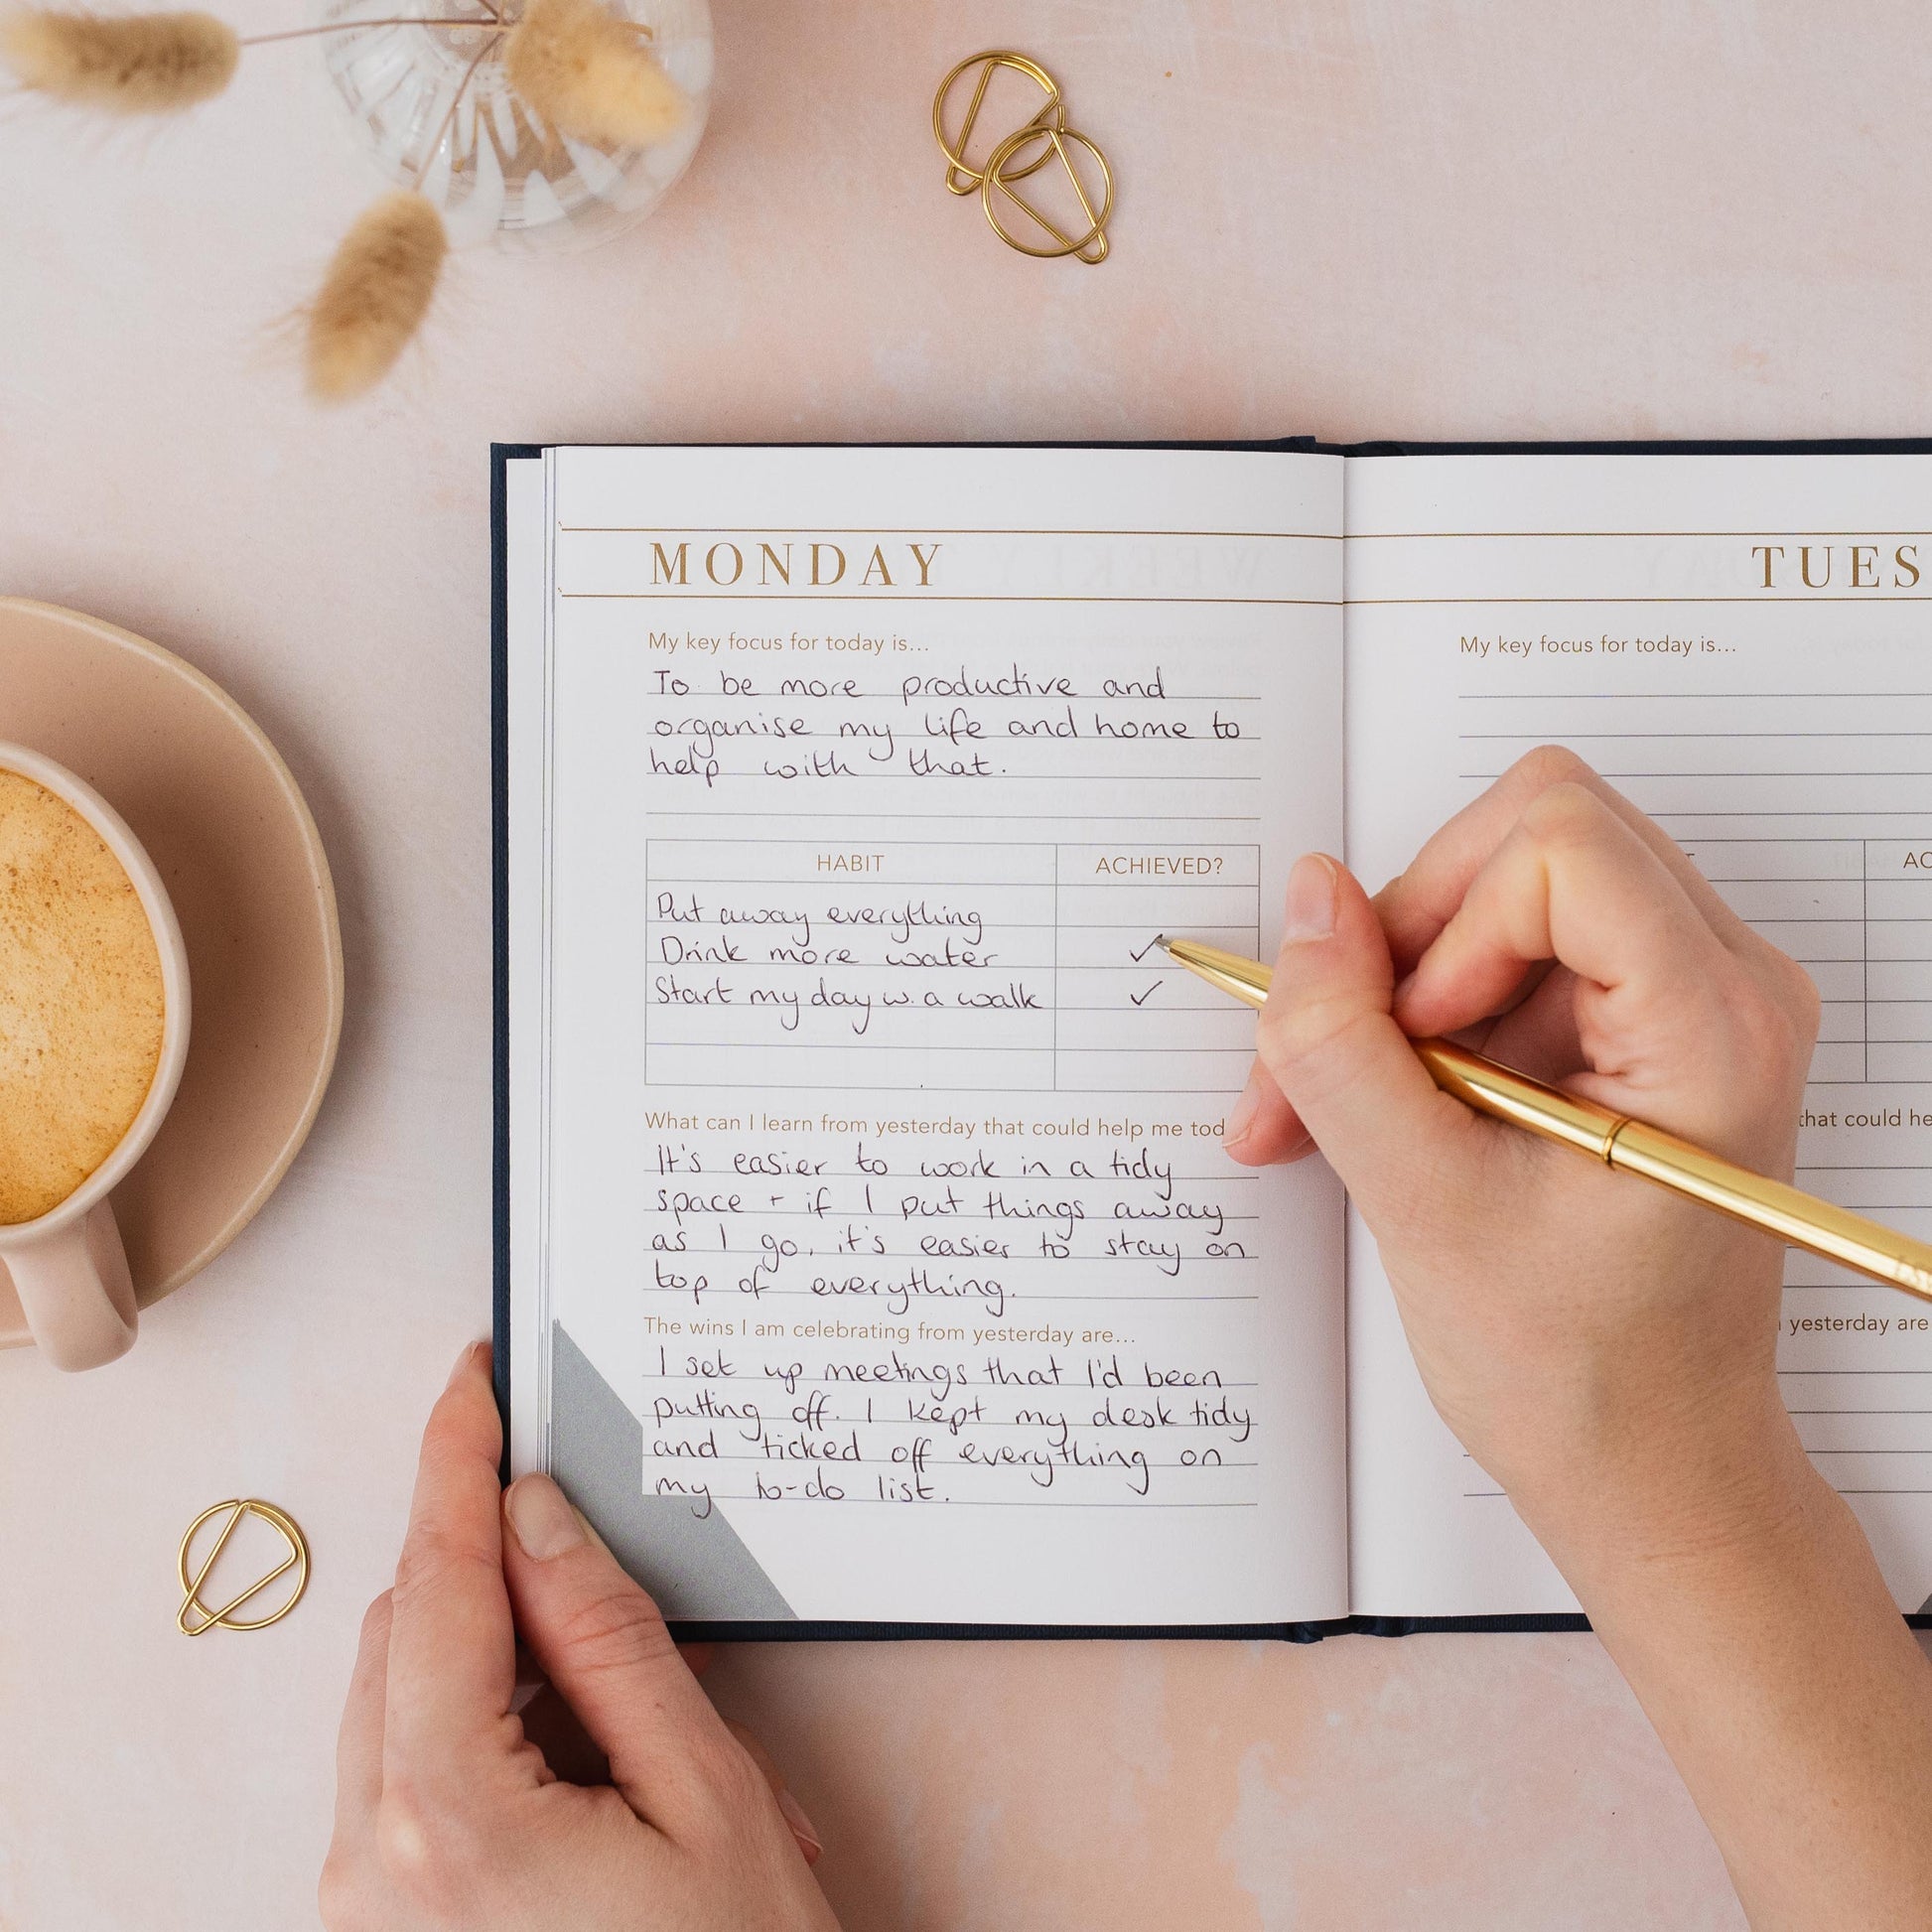 MONDAY
My key focus for today is...
To be more productive and
organise my life and home to
help with that.
HABIT ACHIEVED?
Put away everything
Drink more water ✓
Start my day w. a walk ✓
What can I learn from yesterday that could help me tod
It's easier to work in a tidy
space + if I put things away
as I go, it's easier to stay on
top of everything.
The wins I am celebrating from yesterday are...
I set up meetings that I'd been
putting off. I kept my desk tidy
and ticked off everything on
my to-do list.
TUES
My key focus for today is...
AC
that could he
yesterday are